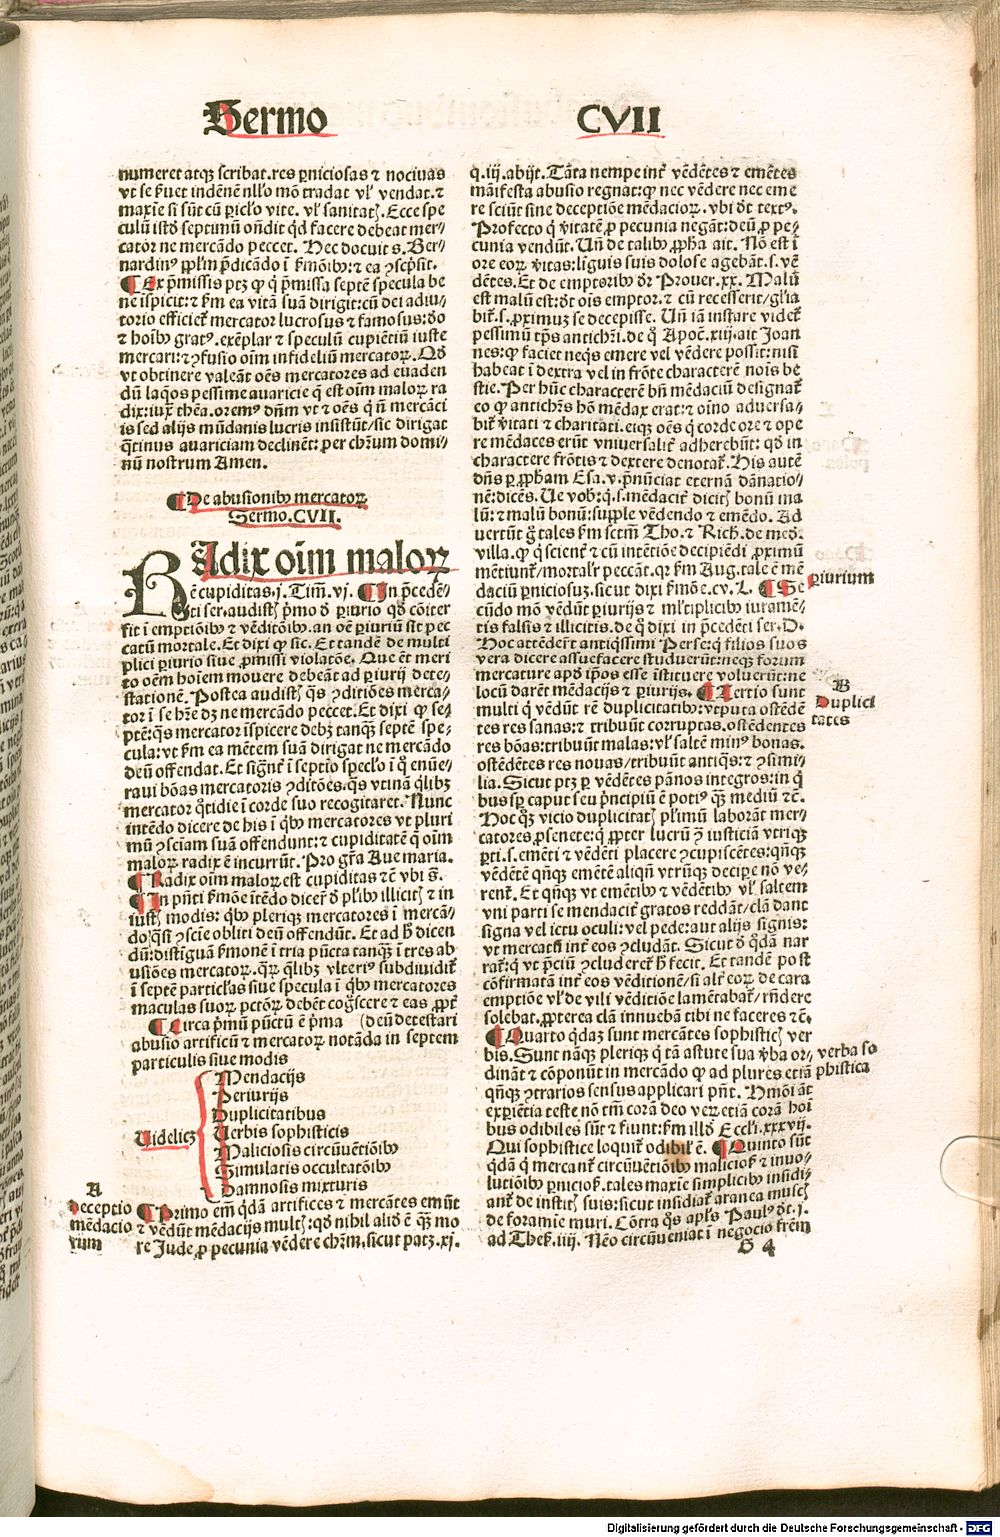 Sermo CVII
numeret atqꝫ scribat.res ꝑniciosas ⁊ nociuas
vt se ẜuet indēnē nll̓o mō tradat vl̓ vendat.⁊
maxīe si sūt cū ꝑicl̓o vite. vl̓ sanitatꝭ. Ecce spe
culū istđ septimū oñdit qđ facere debeat mer-
cator ne mercādo peccet. Hec docuit s. Ber-
nardinꝰ ppl̓m p̄dicādo ī ẜmōibꝰ:⁊ ea ↄscp̄sit.
¶ Ex p̄missis ptꝫ ꝙ q̇ p̄missa septē specula be
ne īspicit:⁊ ẜm ea vitā suā dirigit:cū dei adiu-
torio efficiet̄ mercator lucrosus ⁊ famosus:đo
⁊ hoībꝰ gratꝰ.exēplar ⁊ speculū cupiētiū iuste
mercari:⁊ ↄfusio oīm infideliū mercatoꝝ. Qđ
vt obtinere valeāt oēs mercatores ad euaden
dū laq̇os pessime auaricie q̄ est oīm maloꝝ ra
dix:iuxͭ thēa.oremꝰ dn̄m vt ⁊ oēs q̇ n̄ mercāci
is sed alijs mūdanis lucris insistūt/sic dirigat
qͣtinus auariciam declinēt: per chr̄um domi-
nū nostrum Amen.
¶ De abusionibꝰ mercatoꝝ
Sermo.CVII.
RAdix oīm maloꝝ
ē cupiditas.j. Tim̄. vj. ¶ In p̄cedē-
ti ser.audistꝭ p̄mo đ ꝑiurio qđ cōiter
fit ī emptiōibꝰ ⁊ vēditōibꝰ.an oē ꝑiuriū sit pec
catū mortale. Et dixi ꝙ sic. Et tandē de multi
plici ꝑiurio siue ꝓmissi violatōe. Que ēt meri
to oēm hoīem mouere debeāt ad ꝑiurij dete-
stationē. Postea audistꝭ q̄s ↄditiōes merca-
tor ī se hr̄e dꝫ ne mercādo peccet. Et dixi ꝙ se-
ptē:q̄s mercator īspicere debꝫ tanqͣꝫ septē spe-
cula: vt ẜm ea mētem suā dirigat ne mercādo
deū offendat. Et signāt̄ ī septīo specl̓o ī q̊ enūe-
raui bōas mercatoris ↄditōes.q̄s vtinā q̇libꝫ
mercator qͦtidie ī corde suo recogitaret. Nunc
intēdo dicere de his ī qͥbꝰ mercatores vt pluri
mū ↄsciam suā offendunt:⁊ cupiditatē q̄ oīm
maloꝝ radix ē incurrūt. Pro gr̄a Aue maria.
¶ Radix oīm maloꝝ est cupiditas ⁊c̄ vbi s̄.
¶ In pn̄ti ẜmōe ītēdo dicer̄ đ pl̓ibꝰ illicitꝭ ⁊ in
iustꝭ modis: qͥbꝰ plerique mercatores ī mercā-
do/qͣsi ↄscie obliti deū offendūt. Et ad h̄ dicen
dū:distīguā ẜmonē ī tria pūcta tanqͣꝫ ī tres ab
usiōes mercatoꝝ.quaꝝ q̄libꝫ vlteriꝰ subdiuidit̄
ī septē particl̓as siue specula ī qͥbꝰ mercatores
maculas suoꝝ pctōꝝ debēt cog̊scere ⁊ eas ꝓpt̄
¶ Circa p̄mū pūctū ē p̄ma (deū detestari
abusio artificū ⁊ mercatoꝝ notāda in septem
particulis siue modis
Mendacijs
Periurijs
Duplicitatibus
Uidelicꝫ Uerbis sophisticis
Maliciosis circūuētiōibꝰ
Simulatis occultatōibꝰ
Damnosis mixturis
A
Deceptio
mēdacio
rum
¶ Primo em̄ qͥdā artifices ⁊ mercātes emūt
⁊ vēdūt mēdacijs multꝭ: qđ nihil aliđ ē qͣꝫ mo
re Jude ꝓ pecunia vēdere chr̄m.sicut patꝫ.xj.
q.iij.abijt. Tāta nempe int̄ vēdētes ⁊ emētes
māifesta abusio regnat:ꝙ nec vēdere nec eme
re sciūt sine deceptiōe mēdacioꝝ. vbi đr textꝰ.
Profecto q̇ v̄itatē ꝓ pecunia negāt: deū ꝓ pe-
cunia vendūt. Uñ de talibꝰ ꝓpħa ait. Nō est ī
ore eoꝝ v̄itas:liguis suis dolose agebāt.s.vē
dētes. Et de emptoribꝰ đr Prouer.xx. Malū
est malū est:đt oīs emptor.⁊ cū recesserit/gl̓ia
bit̄.s.ꝓximuꝫ se decepisse. Uñ iā instare videt̄
pessimū tp̄s antichri.de q̊ Apoc̄.xiij.ait Joan
nes:ꝙ faciet neq̇s emere vel vēdere possit:nisi
habeat ī dextra vel in frōte characterē noīs be
stie. Per hūc characterē bn̄ mēdaciū designat̄
eo ꝙ antichr̄s hō mēdax erat:⁊ oīno aduersa-
bit̄ v̄itati ⁊ charitati.eiqꝫ oēs q̇ corde ore ⁊ ope
re mēdaces erūt vniuersalit̄ adherebūt: qđ in
charactere frōtis ⁊ dextere denotat̄. His autē
dn̄s ꝑ ꝓpħam Esa.v.p̄nūciat eternā dānatio-
nē:dicēs. Ue vob̄:q̇.s.mēdacit̄ dicitꝭ bonū ma
lū:⁊ malū bonū:supple vēdendo ⁊ emēdo. Ad
uertūt g̊ tales ẜm sctm̄ Tho.⁊ Rich.de med.
villa.ꝙ q̇ scient̄ ⁊ cū intētiōe decipiēdi ꝓximū
mētiunt̄/mortalr̄ peccāt.qꝛ ẜm Aug.tale ē mē
daciū ꝑniciosuꝫ.sicut dixi ẜmōe.cv.L. ¶ Se
cūdo mō vēdūt ꝑiurijs ⁊ ml̓tiplicibꝰ iuramē-
tis falsis ⁊ illicitis.de q̊ dixi in p̄cedēti ser.D.
Hoc attēderūt antiqͥssimi Perse:q̇ filios suos
vera dicere assuefacere studuerūt:neqꝫ forum
mercature apđ ip̄os esse īstituere voluerūt:ne
locū darēt mēdacijs ⁊ ꝑiurijs. ¶ Tertio sunt
multi q̇ vēdūt rē duplicitatibꝰ:vtputa ostēdē
tes res sanas:⁊ tribuūt corruptas.ostēdentes
res bōas:tribuūt malas:vl̓ saltē minꝰ bonas.
ostēdētes res nouas/tribuūt antiq̄s:⁊ ↄsimi-
lia. Sicut ptꝫ ꝑ vēdētes pānos integros:in q̇
bus sꝑ caput seu p̄ncipiū ē potiꝰ qͣꝫ mediū ⁊c̄.
Hoc qͦqꝫ vicio duplicitatꝭ pl̓imū laborāt mer-
catores ꝓsenete:q̇ ꝓpter lucrū ↄ̄ iusticiā vtriqꝫ
ꝑti.s.emēti ⁊ vēdēti placere ↄcupiscētes:qn̄qꝫ
vēdētē qn̄qꝫ emētē aliqn̄ vtrūqꝫ decipe nō ve-
rent̄. Et qn̄qꝫ vt emētibꝰ ⁊ vēdētibꝰ vl̓ saltem
vni parti se mendacit̄ gratos reddāt/clā dant
signa vel ictu oculi:vel pede:aut alijs signis:
vt mercatꝭ int̄ eos ↄcludāt. Sicut đ qͦdā nar
rat̄:q̇ vt p̄ciū ↄcluderet̄ h̄ fecit. Et tandē post
cōfirmatā int̄ eos vēditionē/si alt̄ eoꝝ de cara
emptiōe vl̓ de vili vēditiōe lamētabat̄/rn̄dere
solebat.ꝓpterea clā innuebā tibi ne faceres ⁊c̄.
¶ Quarto qͥdaꝫ sunt mercātes sophisticꝭ ver
bis. Sunt nāqꝫ pleriqꝫ q̇ tā astute sua v̄ba or-
dināt ⁊ cōponūt in mercādo ꝙ ad plures etiā
qn̄qꝫ ↄtrarios sensus applicari pn̄t. Hmōi āt
exꝑiētia teste nō tm̄ corā deo veꝝ etiā corā hoī
bus odibiles sūt ⁊ fiunt:ẜm illđ Eccl̓i.xxxvij.
Qui sophistice loquit̄ odibil̓ ē. ¶ Quinto sūt
qͥdā q̇ mercant̄ circūuētiōibꝰ maliciosꝭ ⁊ inuo-
lutiōibꝰ ꝑniciosꝭ.tales maxīe simplicibꝰ insidi-
ant̄ de institꝭ suis:sicut insidiat̄ aranea muscꝭ
de foramīe muri. Cōtra q̄s apl̓s Paulꝰ đt.j.
ad Thes̄.iiij. Nēo circūueniat ī negocio fr̄em
periurium
B
Duplici
tates
verba so
phistica
G 4
Digitalisierung gefördert durch die Deutsche Forschungsgemeinschaft - DFG